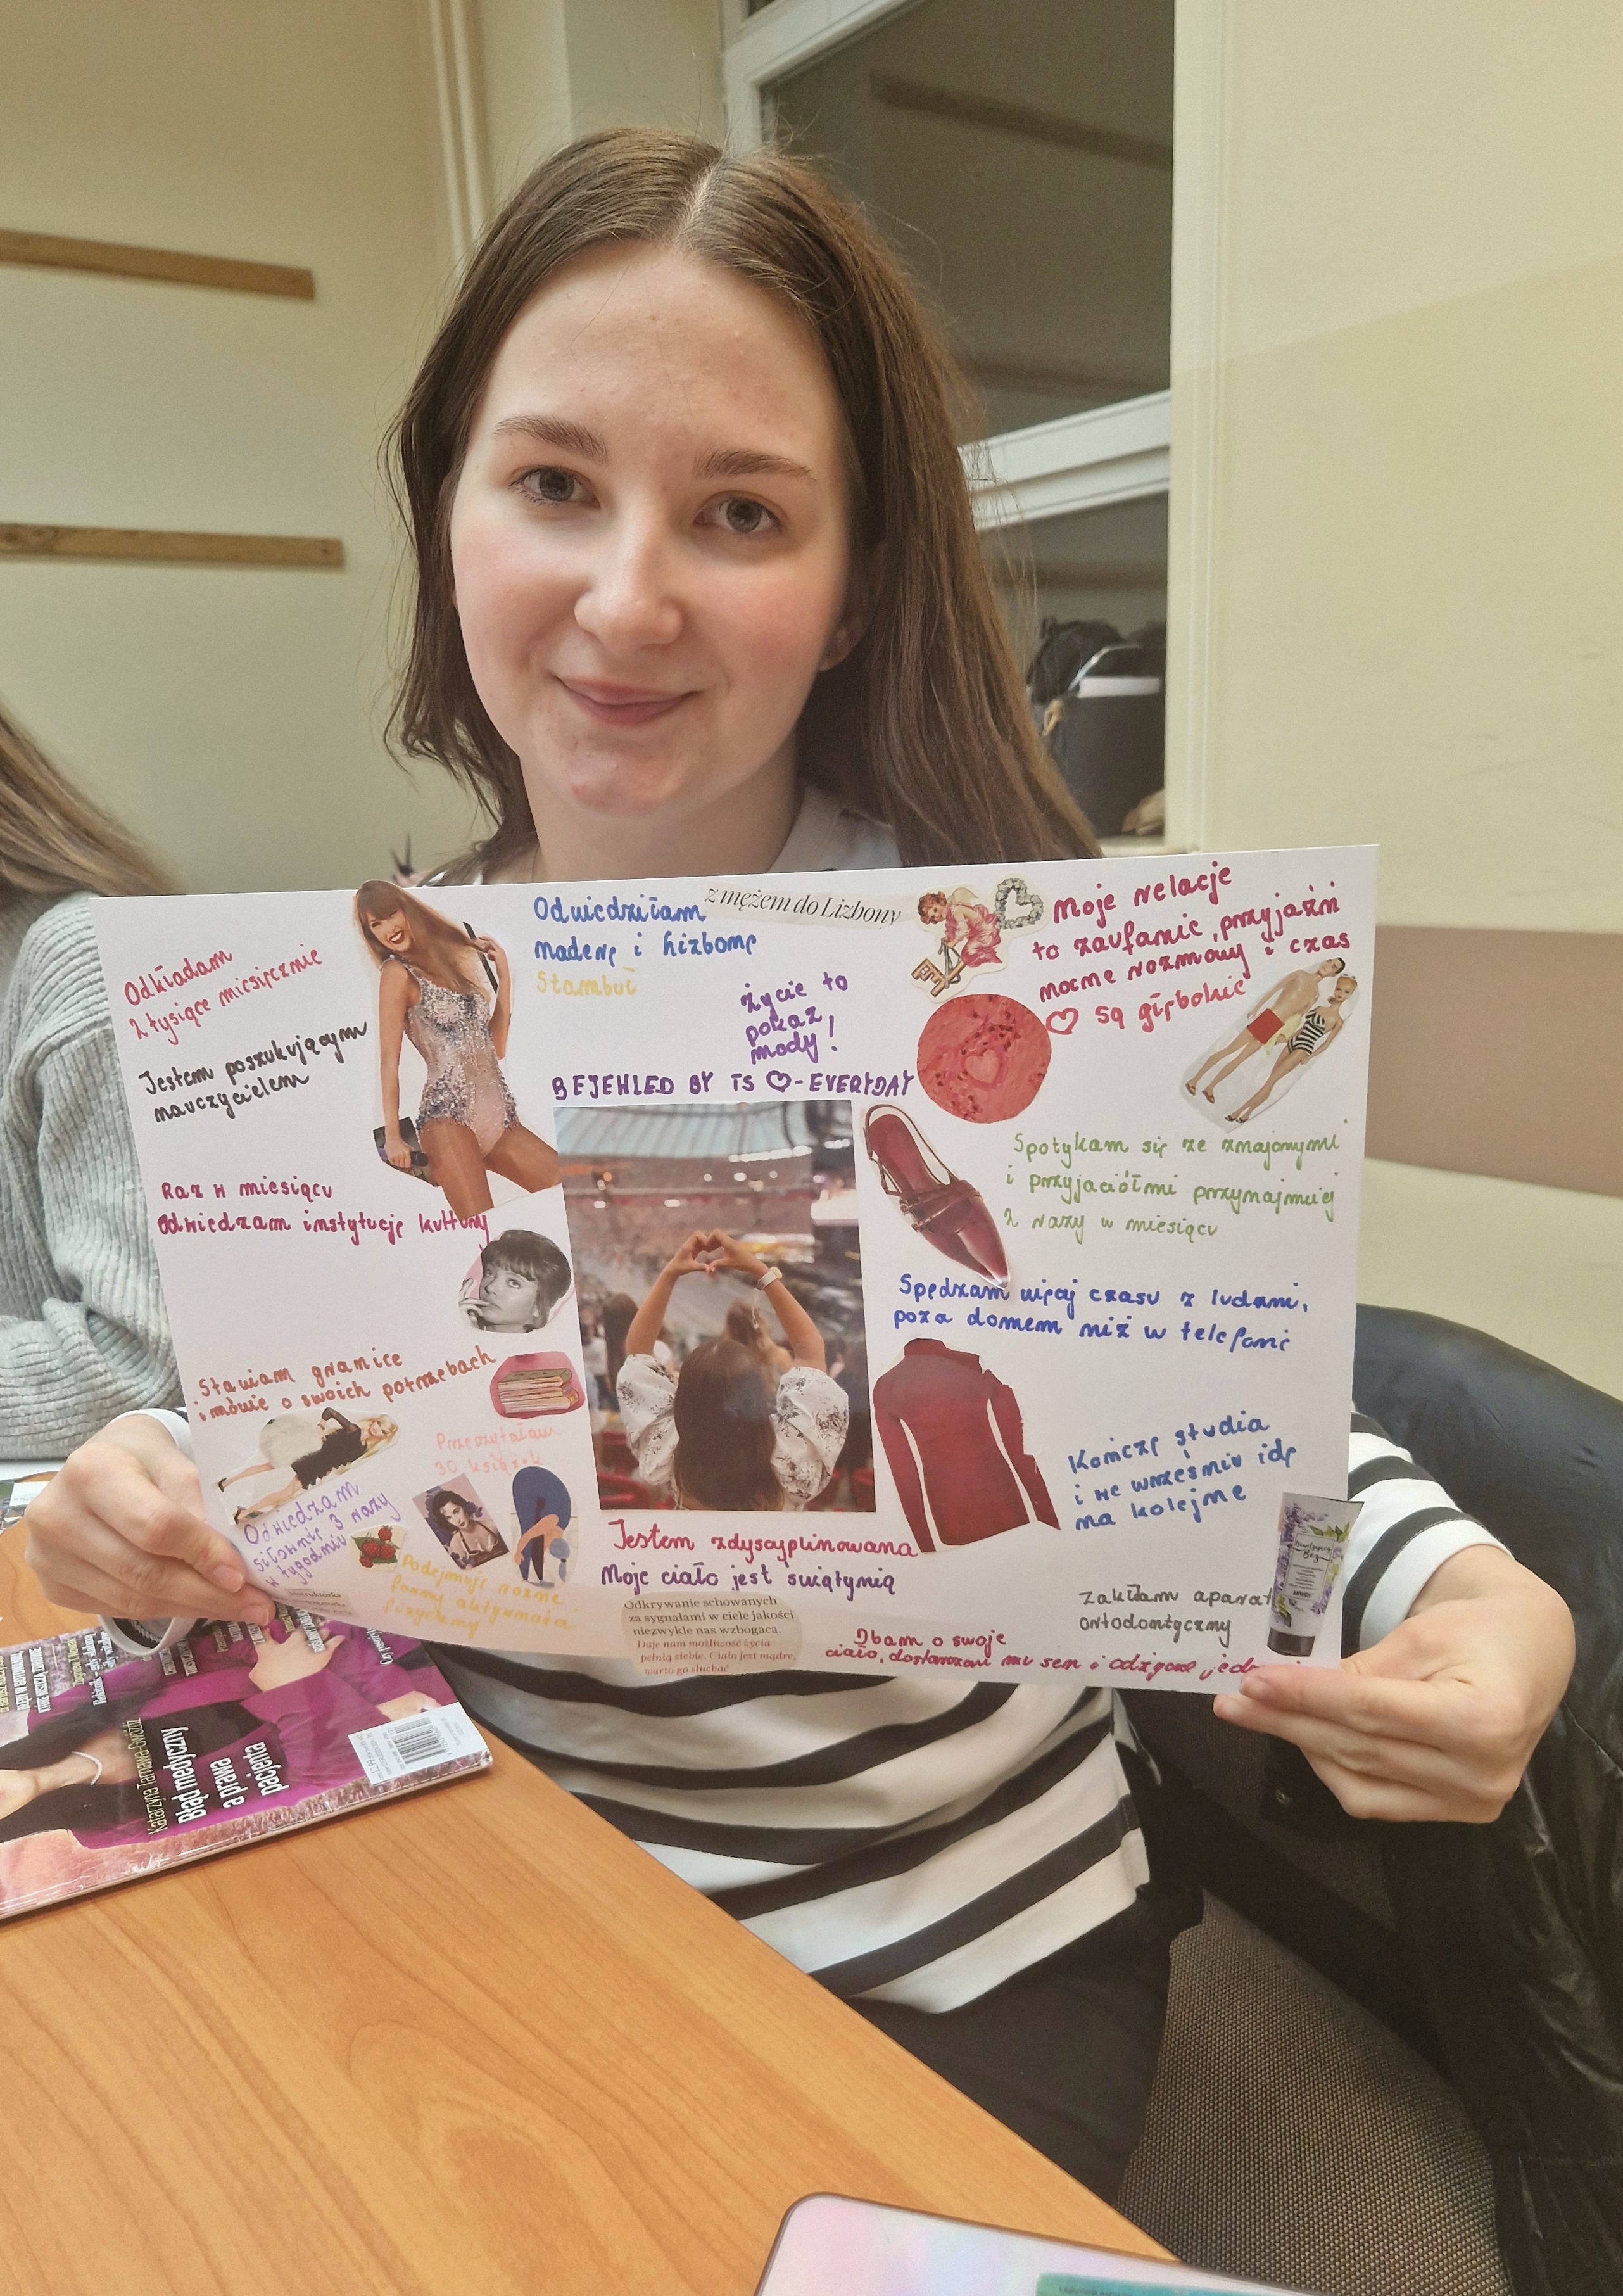 Odkładam
2 tysiące miesięcznie
Jestem poszukującym
nauczycielem
Raz w miesiącu
odwiedzam instytucję kultury
Stawiam granice
i mówię o swoich potrzebach
Przeczytałam
30 książek
Odwiedzam
siłownię 3 razy
w tygodniu
Podejmuję różne
formy aktywności
fizycznej
Odwiedziłam
Maderę i Lizbonę
Stambuł
z mężem do Lizbony
życie to
pokaz
mody!
BEJEHLED BY TS ♡-EVERYDAY
Jestem zdyscyplinowana
Moje ciało jest świątynią
Odkrywanie schowanych
za sygnałami w ciele jakości
niezwykle nas wzbogaca.
Daje nam możliwość życia
pełnią siebie. Ciało jest mądre,
warto go słuchać
Moje relacje
to zaufanie, przyjaźń
nocne rozmowy i czas
♡ są głębokie
Spotykam się ze znajomymi
i przyjaciółmi przynajmniej
2 razy w miesiącu
Spędzam więcej czasu z ludźmi,
poza domem niż w telefonie
Kończę studia
i we wrześniu idę
na kolejne
Zakładam aparat
ortodontyczny
Dbam o swoje
ciało, dostarczam mu sen i odżywcze
Katarzyna
Błąd medyczny
a prawa
pacjenta